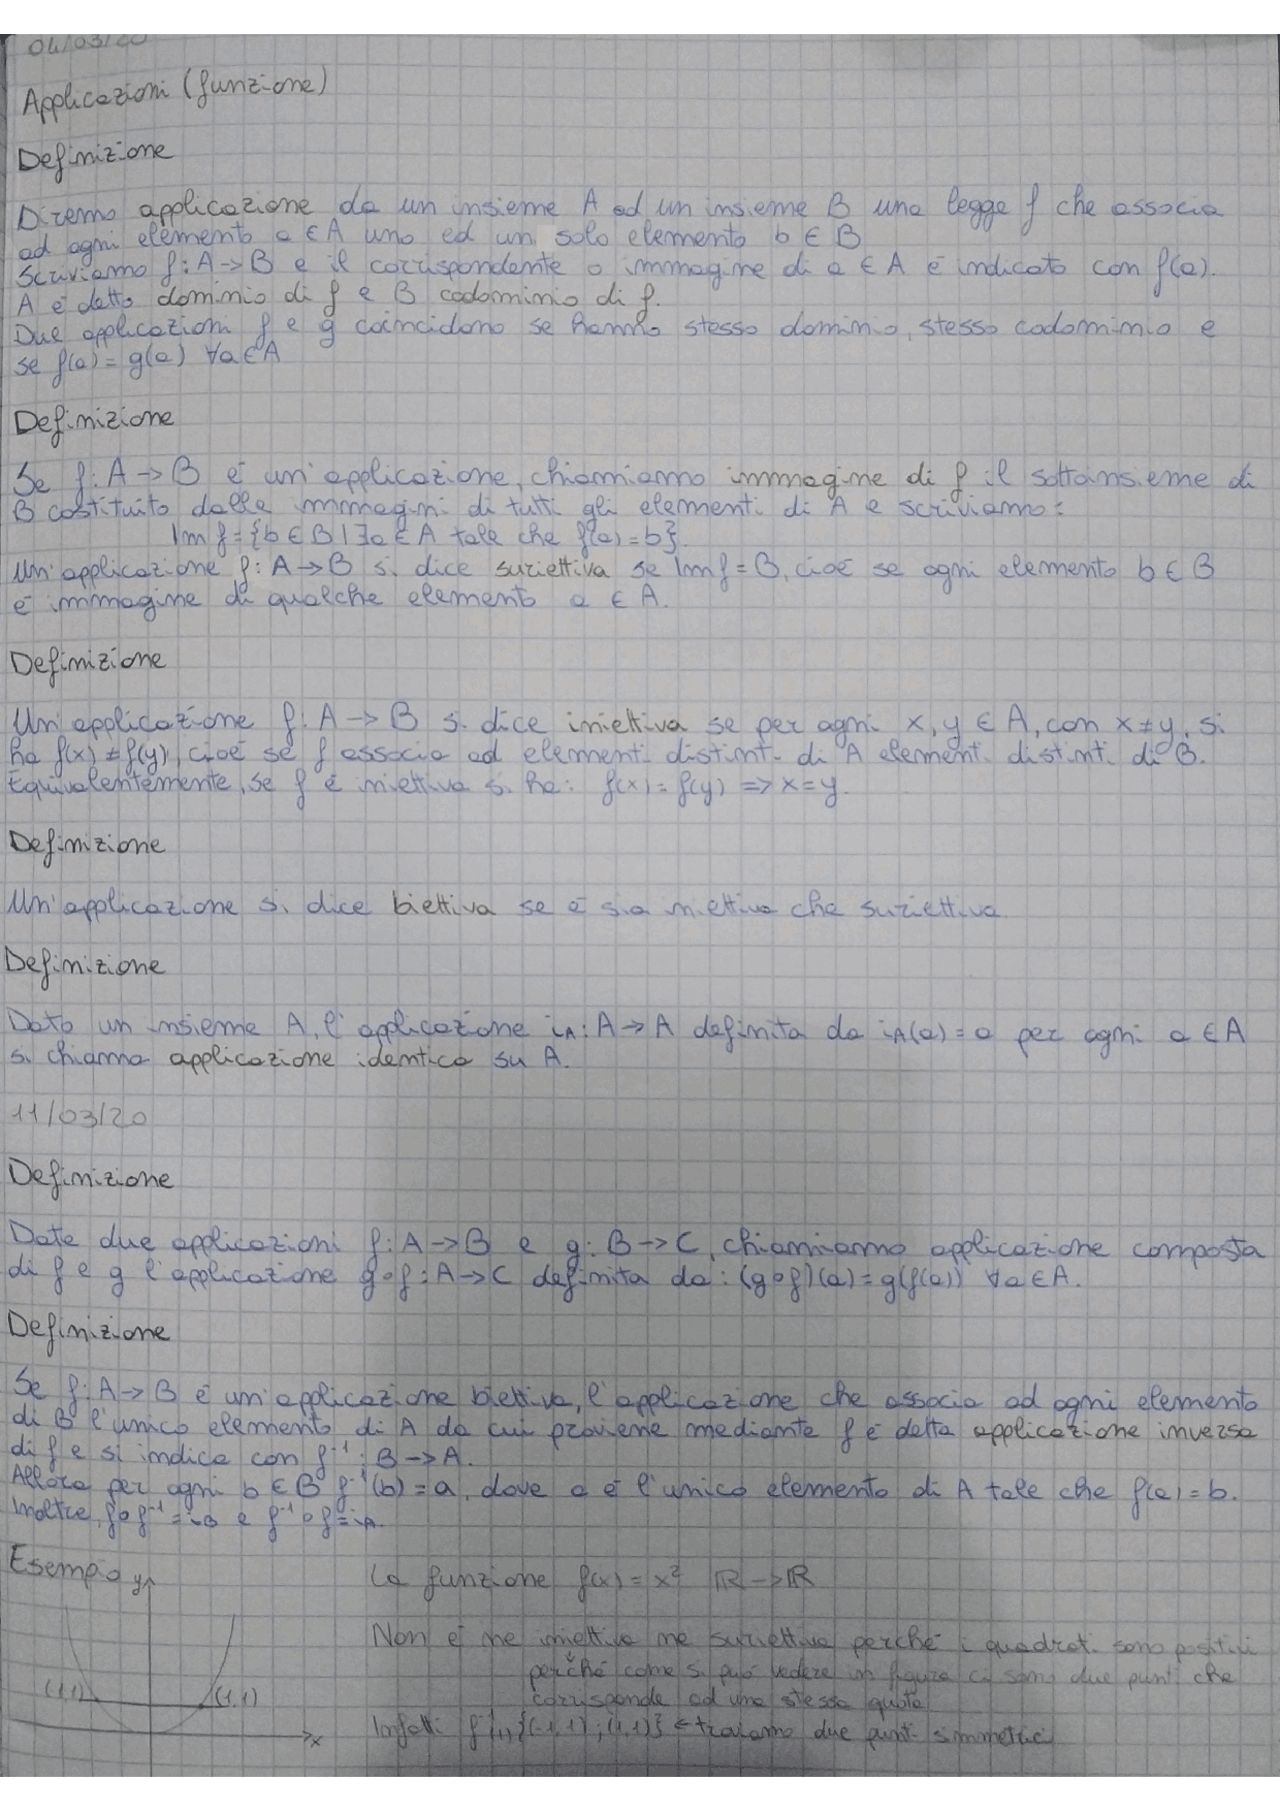 04/03/20
Applicazioni (funzione)
Definizione
Diremo applicazione da un insieme A ad un insieme B una legge f che associa
ad ogni elemento a ∈ A uno ed un solo elemento b ∈ B
Scriviamo f: A → B e il corrispondente o immagine di a ∈ A è indicato con f(a).
A è detto dominio di f e B codominio di f.
Due applicazioni f e g coincidono se hanno stesso dominio, stesso codominio e
se f(a) = g(a) ∀a ∈ A
Definizione
Se f: A → B è un'applicazione, chiamiamo immagine di f il sottoinsieme di
B costituito dalle immagini di tutti gli elementi di A e scriviamo:
Im f = {b ∈ B | ∃a ∈ A tale che f(a) = b}.
Un'applicazione f: A → B si dice suriettiva se Im f = B, cioè se ogni elemento b ∈ B
è immagine di qualche elemento a ∈ A.
Definizione
Un'applicazione f: A → B si dice iniettiva se per ogni x, y ∈ A, con x ≠ y, si
ha f(x) ≠ f(y), cioè se f associa ad elementi distinti di A elementi distinti di B.
Equivalentemente, se f è iniettiva si ha: f(x) = f(y) => x = y.
Definizione
Un'applicazione si dice biettiva se è sia iniettiva che suriettiva
Definizione
Dato un insieme A, l'applicazione i_A: A → A definita da i_A(a) = a per ogni a ∈ A
si chiama applicazione identica su A.
11/03/20
Definizione
Date due applicazioni f: A → B e g: B → C, chiamiamo applicazione composta
di f e g l'applicazione g∘f: A → C definita da: (g∘f)(a) = g(f(a)) ∀a ∈ A.
Definizione
Se f: A → B è un'applicazione biettiva, l'applicazione che associa ad ogni elemento
di B l'unico elemento di A da cui proviene mediante f è detta applicazione inversa
di f e si indica con f⁻¹: B → A.
Allora per ogni b ∈ B f⁻¹(b) = a, dove a è l'unico elemento di A tale che f(a) = b.
Inoltre, f∘f⁻¹ = i_B e f⁻¹∘f = i_A.
Esempio y
La funzione f(x) = x² ℝ → ℝ
Non è ne iniettiva ne suriettiva perché i quadrati sono positivi
perché come si può vedere in figura ci sono due punti che
corrisponde ad una stessa quota
(1,1) (1,1)
Infatti f⁻¹(1) {(-1,1); (1,1)} ← troviamo due punti simmetrici
x